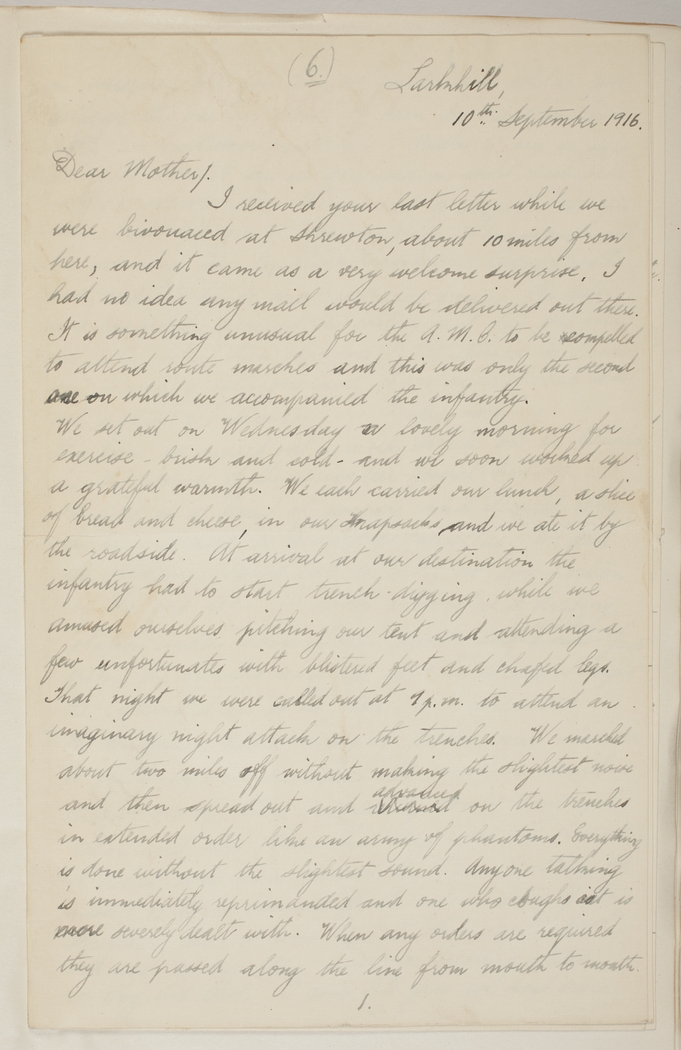 (6.)
Larkhill,
10th. September 1916.
Dear Mother/.
I received your last letter while we
were bivouaced at Shrewton, about 10 miles from
here, and it came as a very welcome surprise. I
had no idea any mail would be delivered out there.
It is something unusual for the A.M.C. to be compelled
to attend route marches and this was only the second
one on which we accompanied the infantry.
We set out on Wednesday a lovely morning for
exercise - brisk and cold - and we soon worked up
a grateful warmth. We each carried our lunch, a slice
of bread and cheese, in our knapsacks, and we ate it by
the roadside. At arrival at our destination the
infantry had to start trench-digging, while we
amused ourselves pitching our tent and attending a
few unfortunates with blistered feet and chafed legs.
That night we were called out at 9 p.m. to attend an
imaginary night attack on the trenches. We marched
about two miles off without making the slightest noise
and then spread out and advanced on the trenches
in extended order like an army of phantoms. Everything
is done without the slightest sound. Anyone talking
is immediately reprimanded and one who coughs is
more severely dealt with. When any orders are required
they are passed along the line from mouth to mouth.
1.